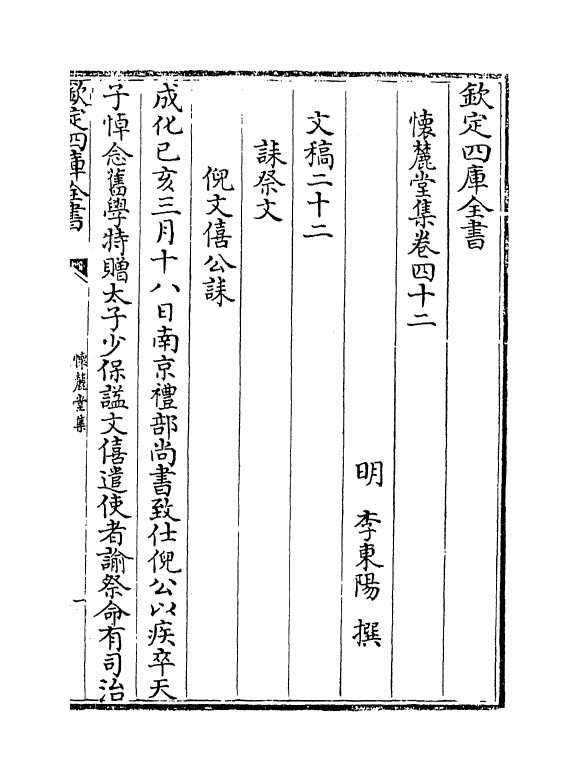 欽定四庫全書
懷麓堂集卷四十二
明　李東陽　撰
文稿二十二
誄祭文
倪文僖公誄
成化己亥三月十八日南京禮部尚書致仕倪公以疾卒天
子悼念舊學特贈太子少保謚文僖遣使者諭祭命有司治
欽定四庫全書
懷麓堂集
一